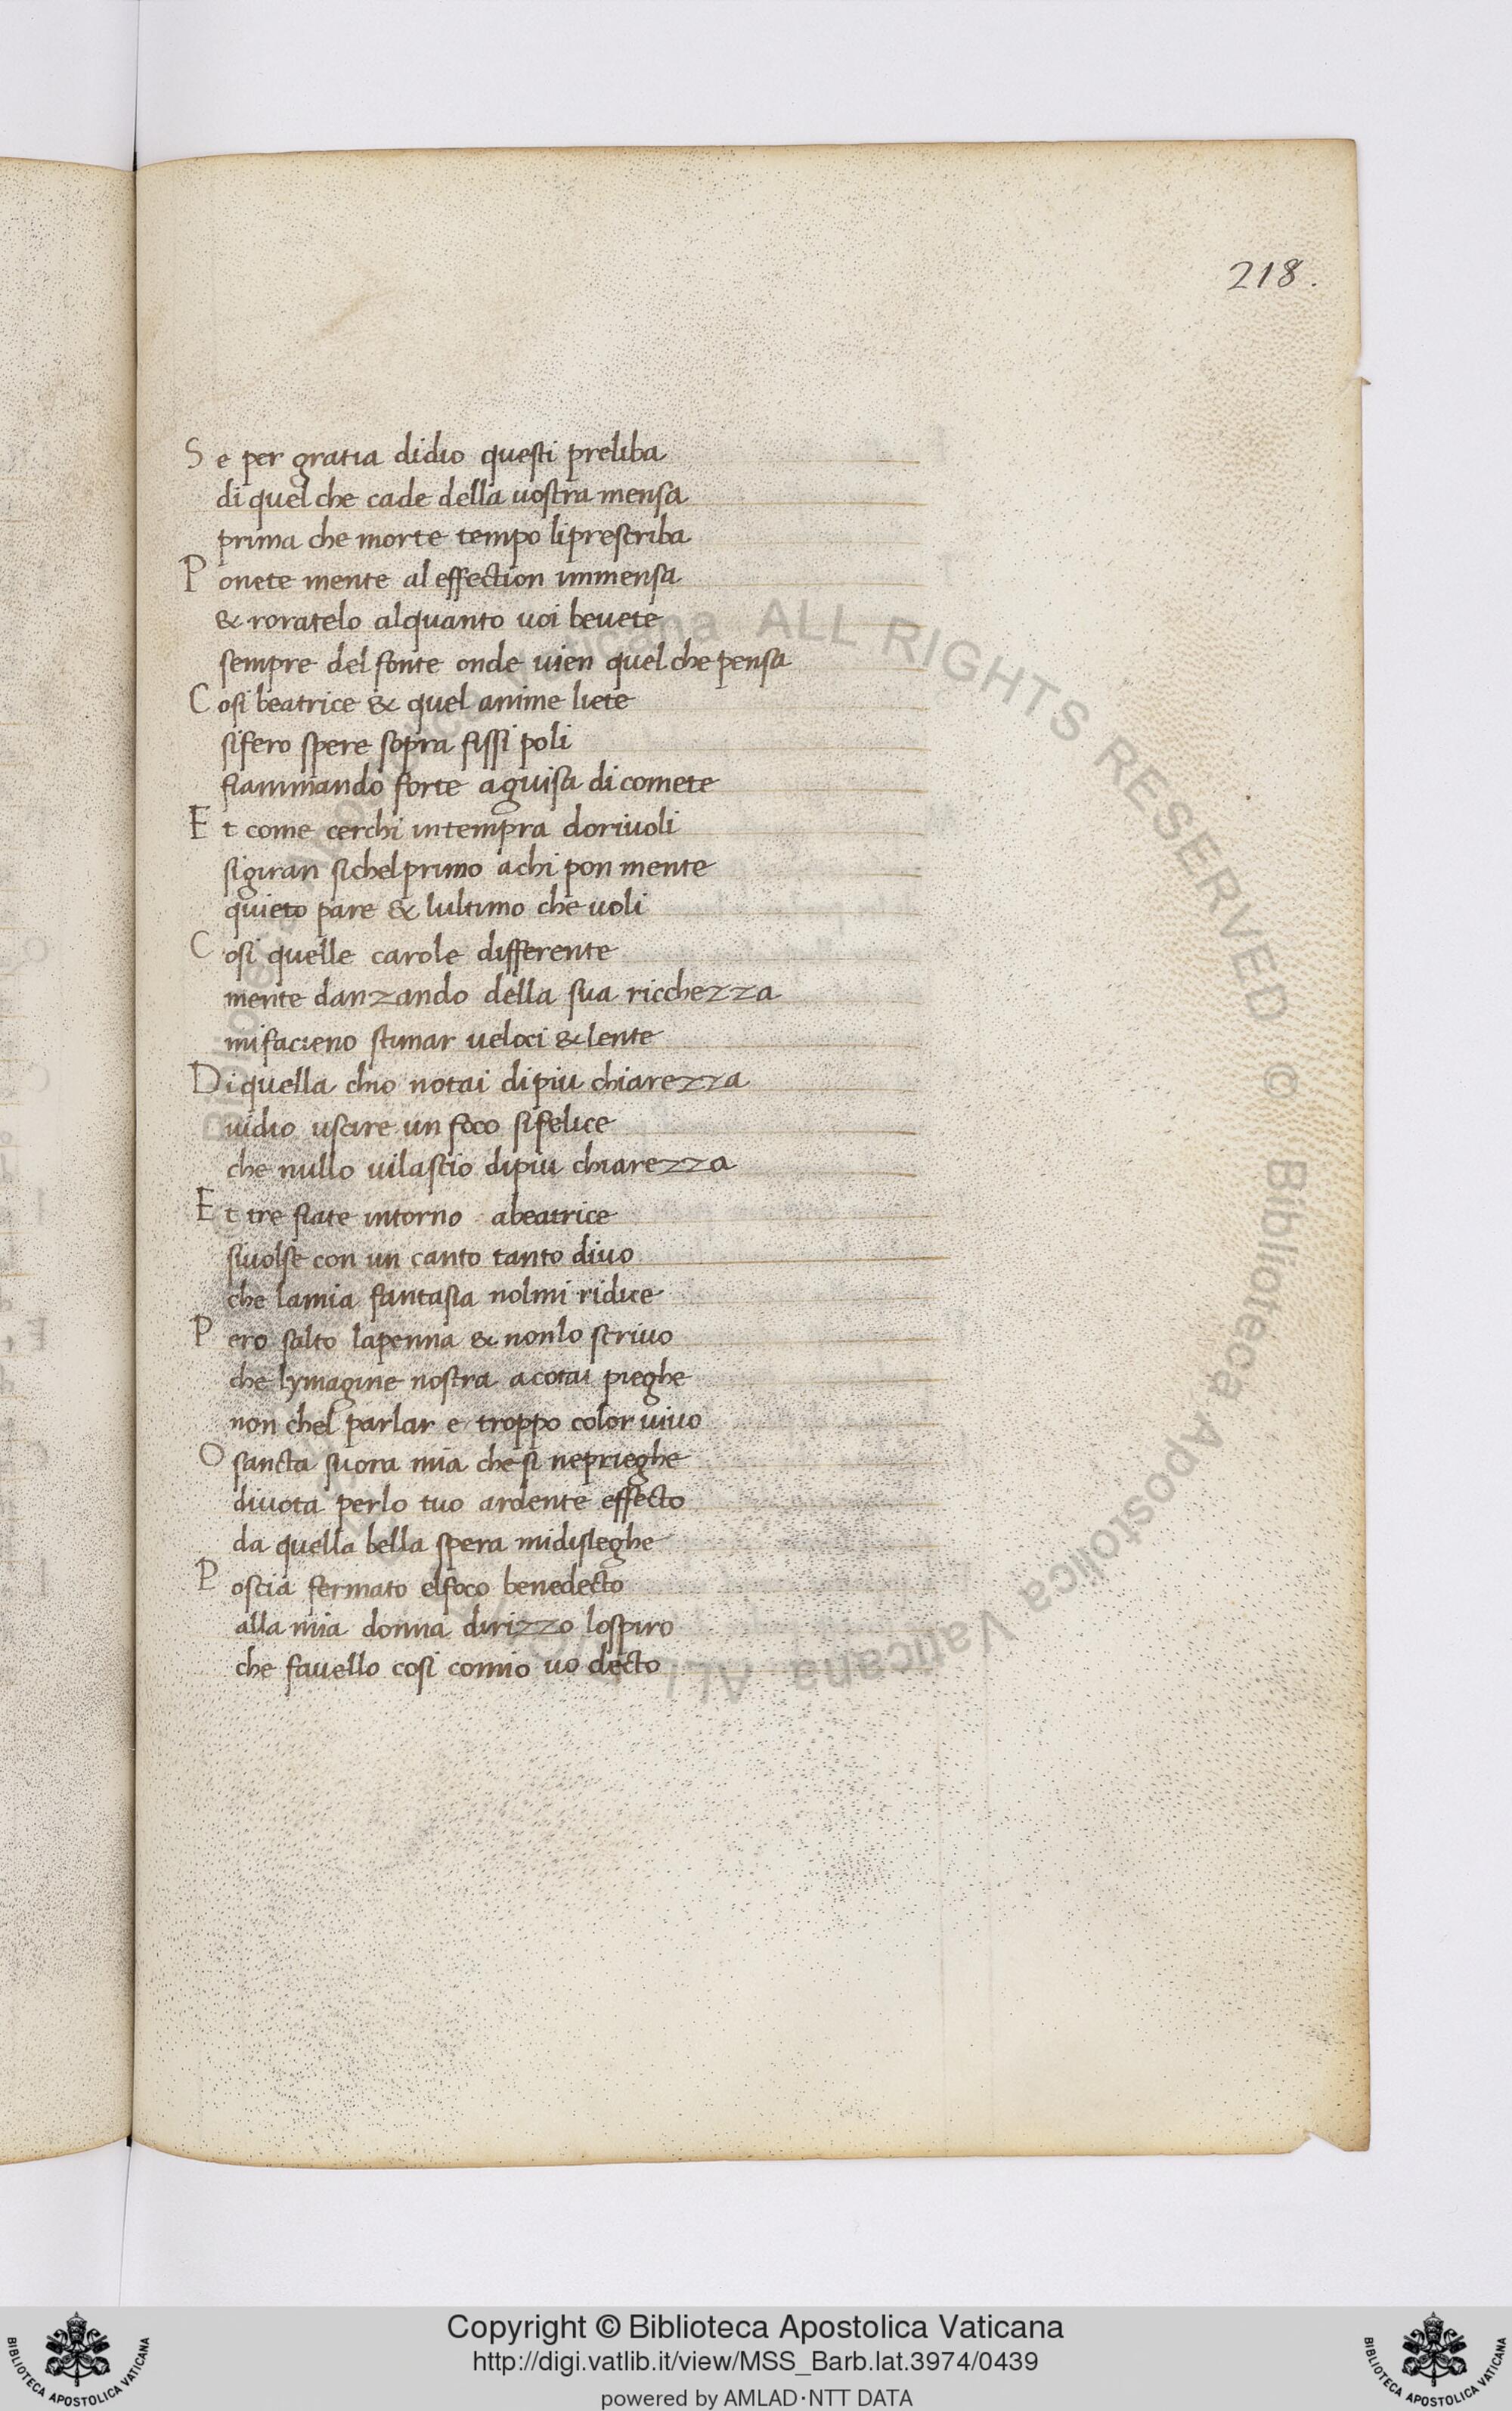 218.
Se per gratia didio questi preliba
di quel che cade della uostra mensa
prima che morte tempo liprescriba
Ponete mente al effection immensa
& roratelo alquanto uoi beuete
sempre del fonte onde uien quel che pensa
Cosi beatrice & quel anime liete
sifero spere sopra fissi poli
fiammando forte aguisa di comete
Et come cerchi intempra doriuoli
sigiran sichelprimo achi pon mente
quieto pare & lultimo che uoli
Cosi quelle carole differente
mente danzando della sua ricchezza
mifacieno stimar ueloci & lente
Di quella chio notai di piu chiarezza
uidio uscire un foco sifelice
che nullo uilascio dipiu chiarezza
Et tre fiate intorno abeatrice
siuolse con un canto tanto diuo
che lamia fantasia nolmi ridice
Pero salto lapenna & nonlo scriuo
che lymagine nostra acotai pieghe
non chel parlar e troppo color uiuo
O sancta suora mia che si neprieghe
diuota perlo tuo ardente effecto
da quella bella spera midisleghe
Poscia fermato elfoco benedecto
alla mia donna dirizzo lospiro
che fauello cosi comio uo decto
Biblioteca Apostolica Vaticana ALL RIGHTS RESERVED © Biblioteca Apostolica Vaticana ALL
Copyright © Biblioteca Apostolica Vaticana
http://digi.vatlib.it/view/MSS_Barb.lat.3974/0439
powered by AMLAD·NTT DATA
BIBLIOTECA APOSTOLICA VATICANA
BIBLIOTECA APOSTOLICA VATICANA